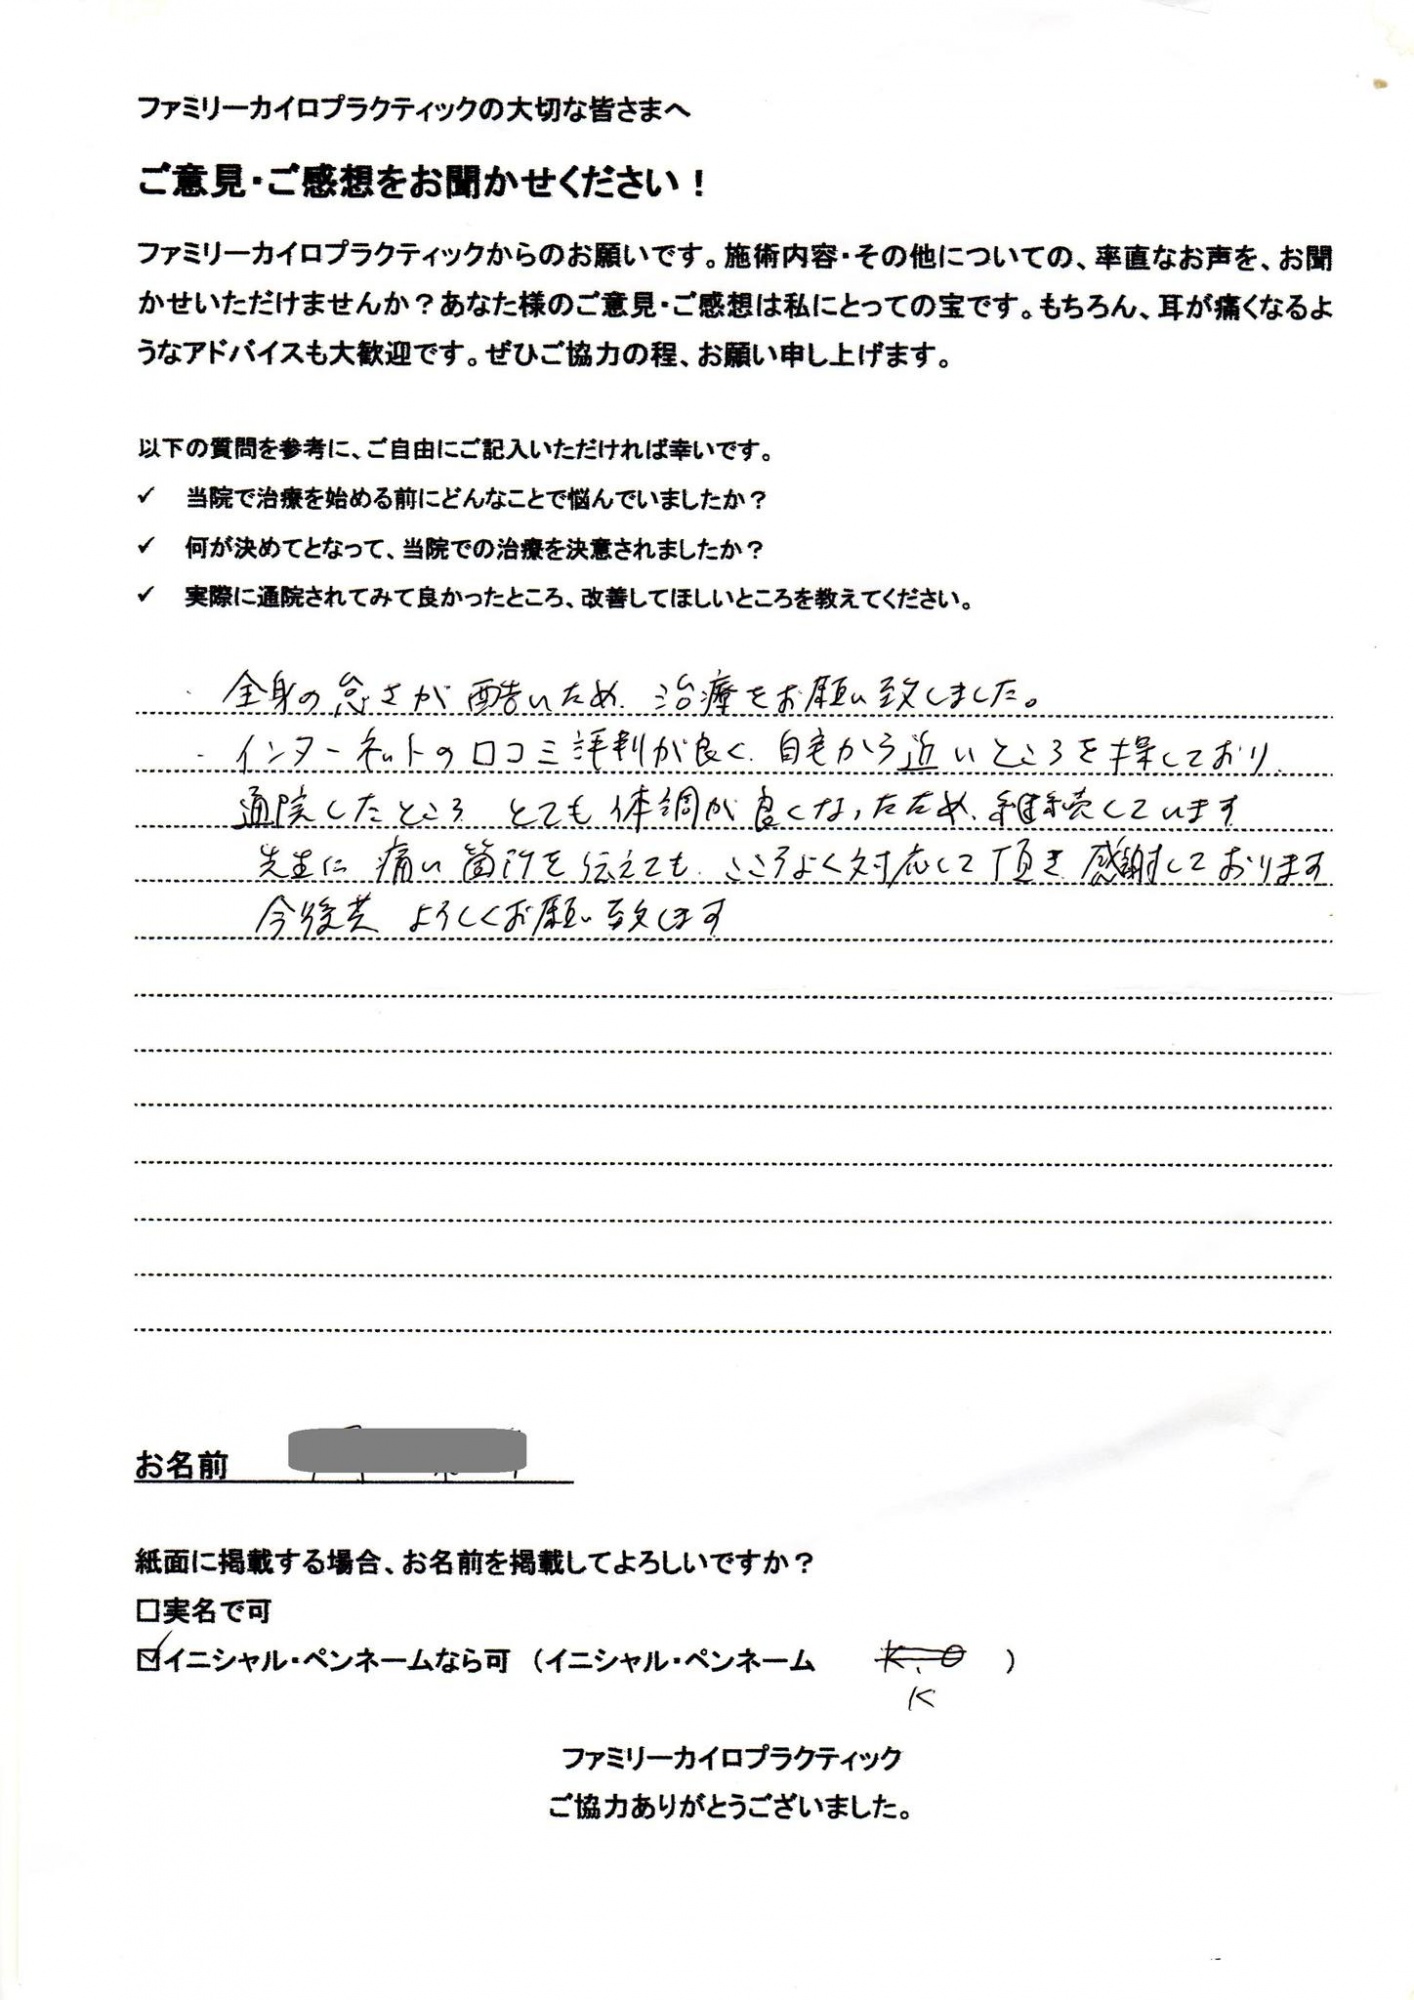 ファミリーカイロプラクティックの大切な皆さまへ
ご意見・ご感想をお聞かせください！
ファミリーカイロプラクティックからのお願いです。施術内容・その他についての、率直なお声を、お聞
かせいただけませんか？あなた様のご意見・ご感想は私にとっての宝です。もちろん、耳が痛くなるよ
うなアドバイスも大歓迎です。ぜひご協力の程、お願い申し上げます。
以下の質問を参考に、ご自由にご記入いただければ幸いです。
✓ 当院で治療を始める前にどんなことで悩んでいましたか？
✓ 何が決めてとなって、当院での治療を決意されましたか？
✓ 実際に通院されてみて良かったところ、改善してほしいところを教えてください。
・全身の怠さが酷いため、治療をお願い致しました。
・インターネットの口コミ評判が良く、自宅から近いところを探しており、
通院したところ とても体調が良くなったため、継続しています
先生に痛い箇所を伝えても、こころよく対応して頂き 感謝しております
今後共 よろしくお願い致します
お名前
紙面に掲載する場合、お名前を掲載してよろしいですか？
□実名で可
☑イニシャル・ペンネームなら可（イニシャル・ペンネーム K.O ）
K
ファミリーカイロプラクティック
ご協力ありがとうございました。